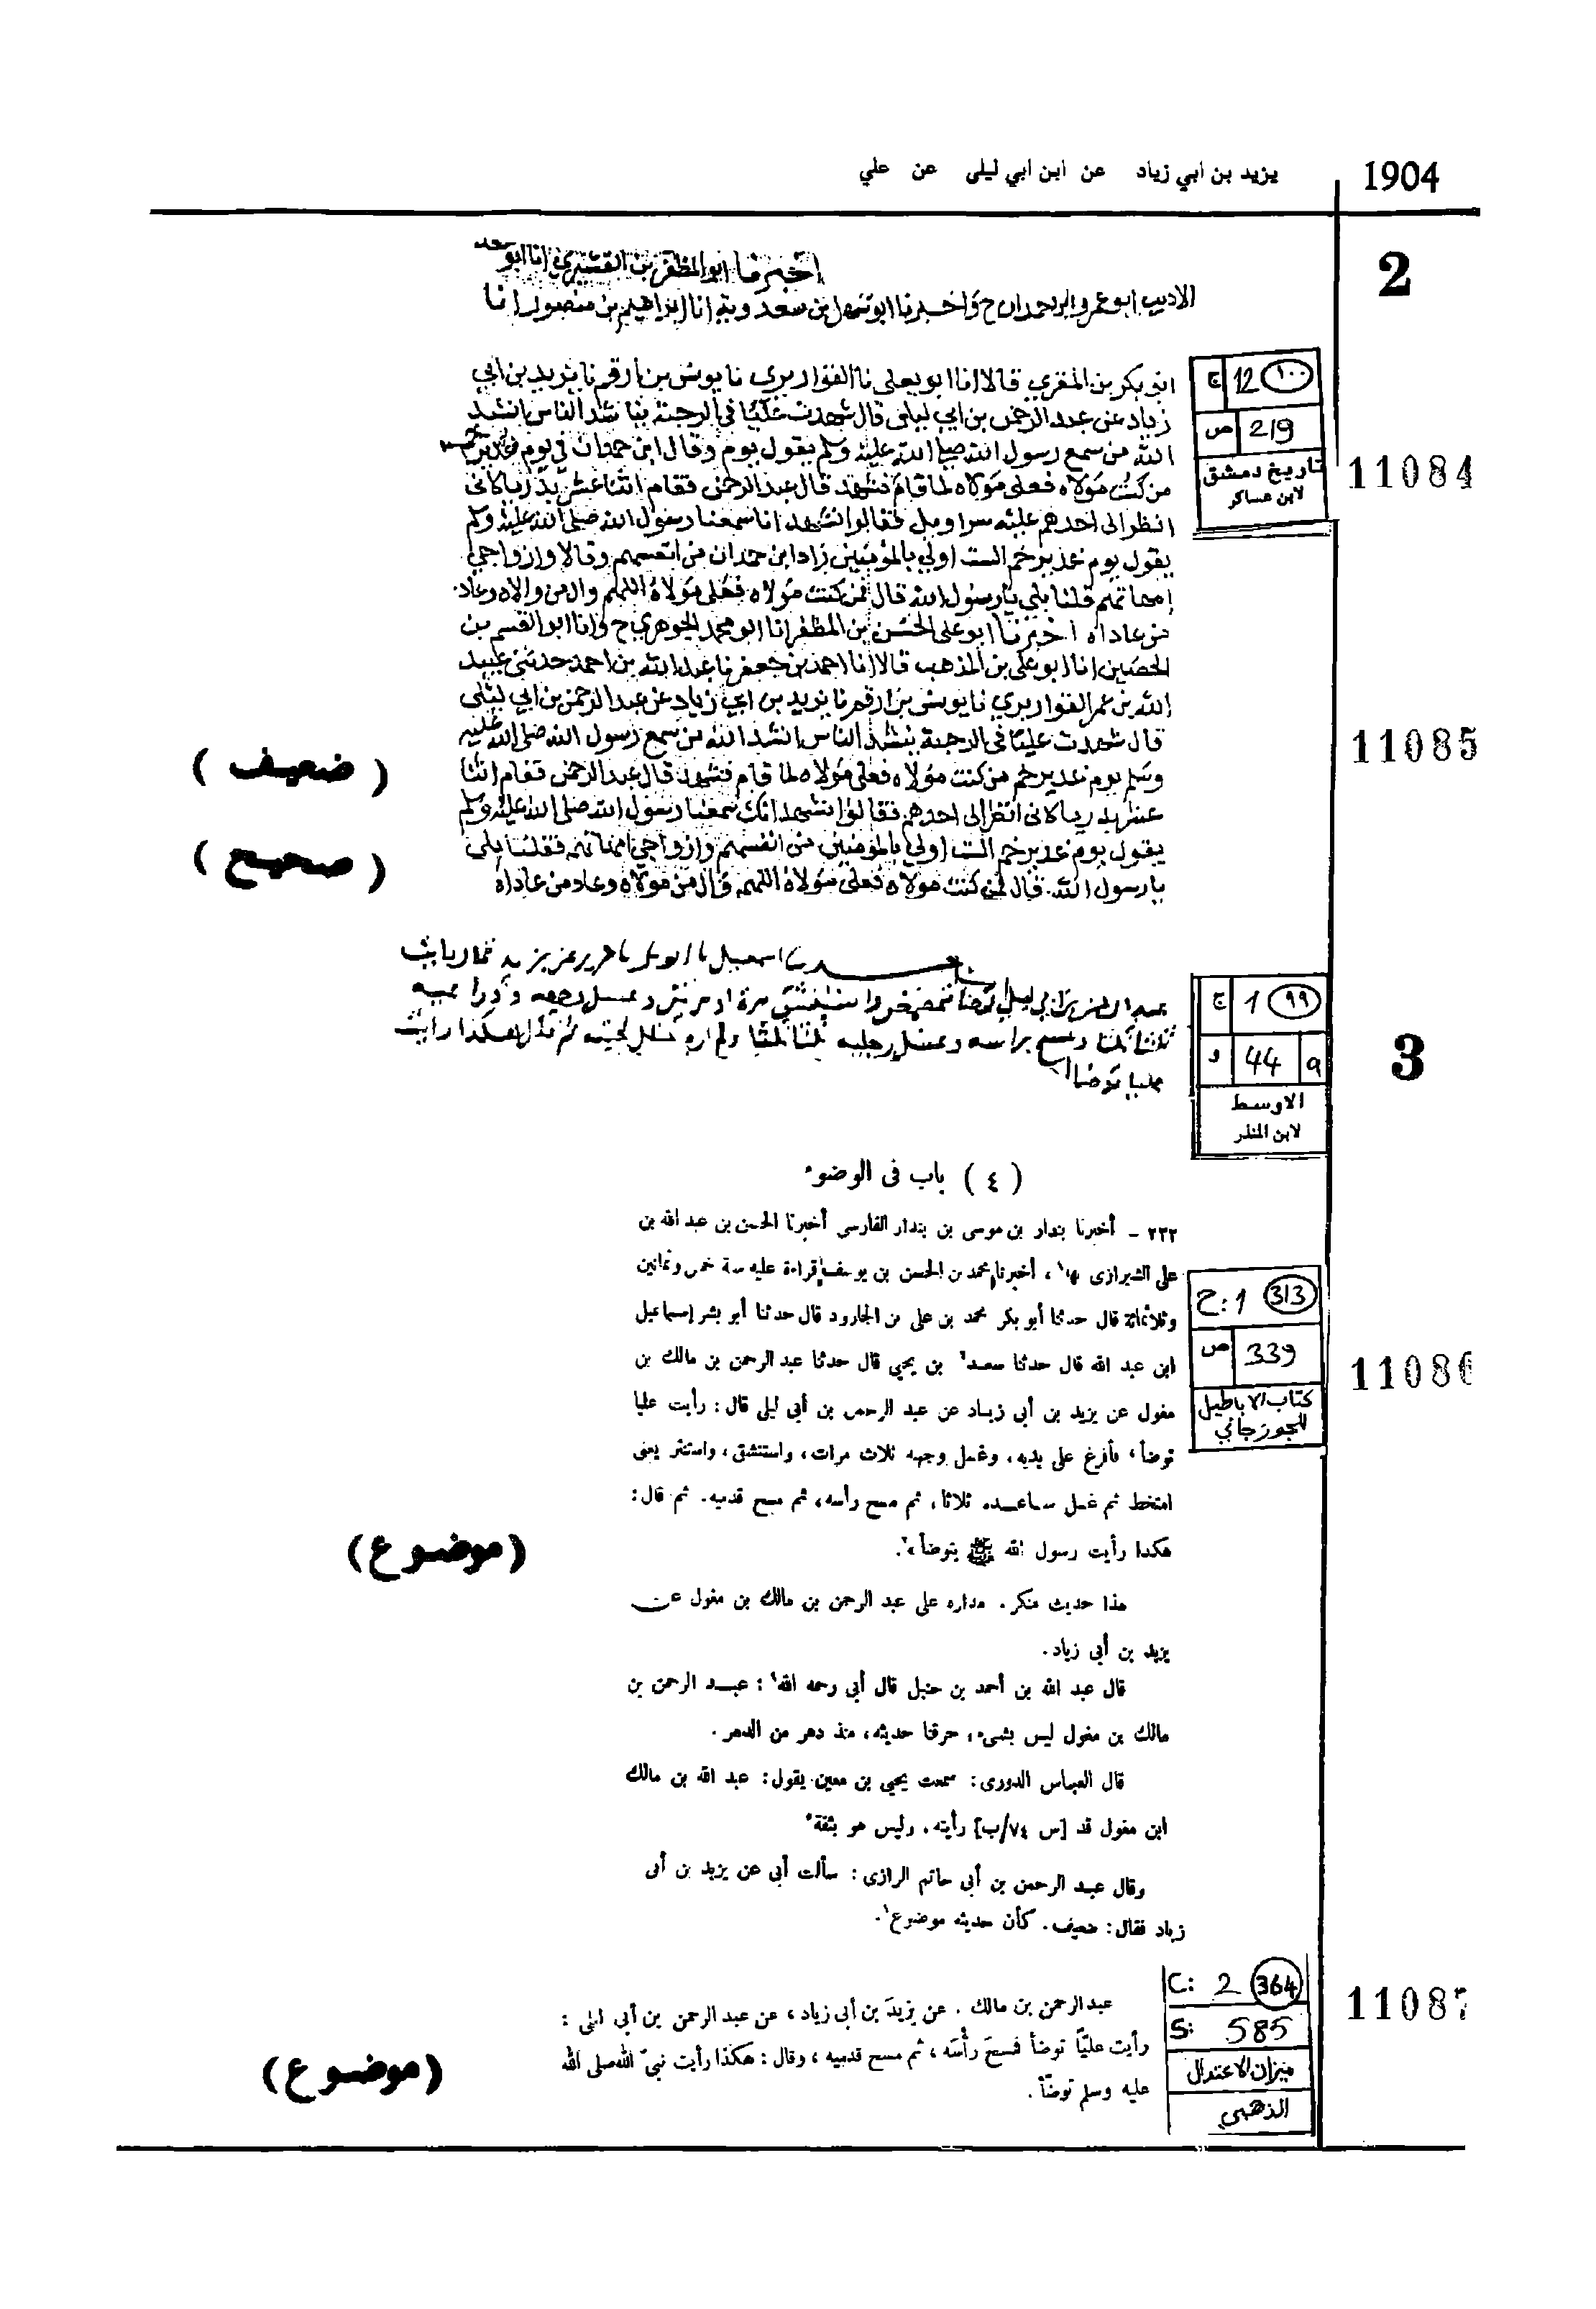 1904
يزيد بن ابي زياد عن ابن ابي ليلى عن علي
2
اخبرنا ابو المظفر بن القشيري انا ابو سعد
الاديب ابو عمرو الرحمدان ح واخبرنا ابو سهل بن سعدويه انا ابراهيم بن منصور انا
ج 12 ١٠٠
ص 219
تاريخ دمشق
لابن عساكر
11084
ابو بكر بن المقري قالا انا ابو يعلى نا القواريري نا يونس بن ارقم نا يزيد بن ابي
زياد عن عبد الرحمن بن ابي ليلى قال شهدت عليا في الرحبة يناشد الناس انشد
الله من سمع رسول الله صلى الله عليه وسلم يقول يوم وقال ابن حمدان في يوم غدير خم
من كنت مولاه فعلي مولاه لما قام فشهد قال عبد الرحمن فقام اثنا عشر بدريا كاني
انظر الى احدهم عليه سراويل فقالوا نشهد انا سمعنا رسول الله صلى الله عليه وسلم
يقول يوم غدير خم الست اولي بالمؤمنين زاد ابن حمدان من انفسهم وقالا وازواجي
امهاتهم قلنا بلي يا رسول الله قال فمن كنت مولاه فعلي مولاه اللهم وال من والاه وعاد
من عاداه اخبرنا ابو علي الحسن بن المظفر انا ابو محمد الجوهري ح وانا ابو القسم بن
الحصين انا ابو علي بن المذهب قالا انا احمد بن جعفر نا عبد الله بن احمد حدثني عبيد
الله بن عمر القواريري نا يونس بن ارقم نا يزيد بن ابي زياد عن عبد الرحمن بن ابي ليلى
11085
قال شهدت عليا في الرحبة ينشد الناس انشد الله من سمع رسول الله صلى الله عليه
وسلم يوم غدير خم من كنت مولاه فعلي مولاه لما قام فشهد قال عبد الرحمن فقام اثنا
( ضعيف )
عشر بدريا كاني انظر الى احدهم فقالوا نشهد انا سمعنا رسول الله صلى الله عليه وسلم
يقول يوم غدير خم الست اولي بالمؤمنين من انفسهم وازواجي امهاتهم فقلنا بلى
( صحيح )
يا رسول الله قال فمن كنت مولاه فعلي مولاه اللهم وال من مولاه وعاد من عاداه
3
ج 1 ٩٩
و 44 a
الاوسط
لابن المنذر
اسمعيل نا ابو بكر نا جرير عن يزيد قال رايت
عبد الرحمن بن ابي ليلى توضا فمضمض واستنشق مرة او مرتين وغسل وجهه وذراعيه
ثلثا ثلثا ومسح براسه وغسل رجليه ثلثا ثلثا ولم اره خلل لحيته ثم قال هكذا رايت
عليا توضا
( ٤ ) باب فى الوضوء
11086
ج: 1 313
ص 339
كتاب الاباطيل
للجوزجاني
٢٣٢ - أخبرنا بندار بن موسى بن بندار الفارسى أخبرنا الحسن بن عبد الله بن
على الشيرازى بها١، أخبرنا محمد بن الحسن بن يوسف قراءة عليه سة خمس وثمانين
وثلاثمائة قال حدثنا أبو بكر محمد بن على بن الجارود قال حدثنا أبو بشر إسماعيل
ابن عبد الله قال حدثنا سعد بن يحيى قال حدثنا عبد الرحمن بن مالك بن
مغول عن يزيد بن أبى زياد عن عبد الرحمن بن أبى ليلى قال: رأيت عليا
توضأ، فأفرغ على يديه، وغسل وجهه ثلاث مرات، واستنشق، واستنثر يعنى
امتخط ثم غسل ساعديه ثلاثا، ثم مسح رأسه، ثم مسح قدميه. ثم قال:
هكذا رأيت رسول الله ﷺ يتوضأ.
(موضوع)
هذا حديث منكر. مداره على عبد الرحمن بن مالك بن مغول عن
يزيد بن أبى زياد.
قال عبد الله بن أحمد بن حنبل قال أبى رحمه الله: عبد الرحمن بن
مالك بن مغول ليس بشىء، حرقنا حديثه، منذ دهر من الدهر.
قال العباس الدورى: سمعت يحيى بن معين يقول: عبد الله بن مالك
ابن مغول قد [س ٧٤/ب] رأيته. وليس هو بثقة
وقال عبد الرحمن بن أبى حاتم الرازى: سألت أبى عن يزيد بن أبى
زياد فقال: ضعيف. كأن حديثه موضوع.
11087
C: 2 364
S: 585
ميزان الاعتدال
الذهبي
عبد الرحمن بن مالك. عن يزيدَ بن أبى زياد، عن عبد الرحمن بن أبى ليلى:
رأيت عليًّا توضأ فمسحَ رأسَه، ثم مسح قدميه، وقال: هكذا رأيت نبىّ الله صلى الله
عليه وسلم توضّأ.
(موضوع)